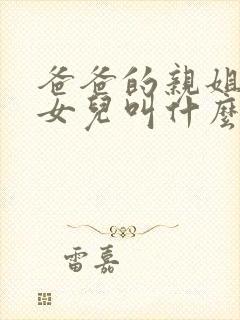 爸爸的親姐
女兒叫什麼
雷嘉